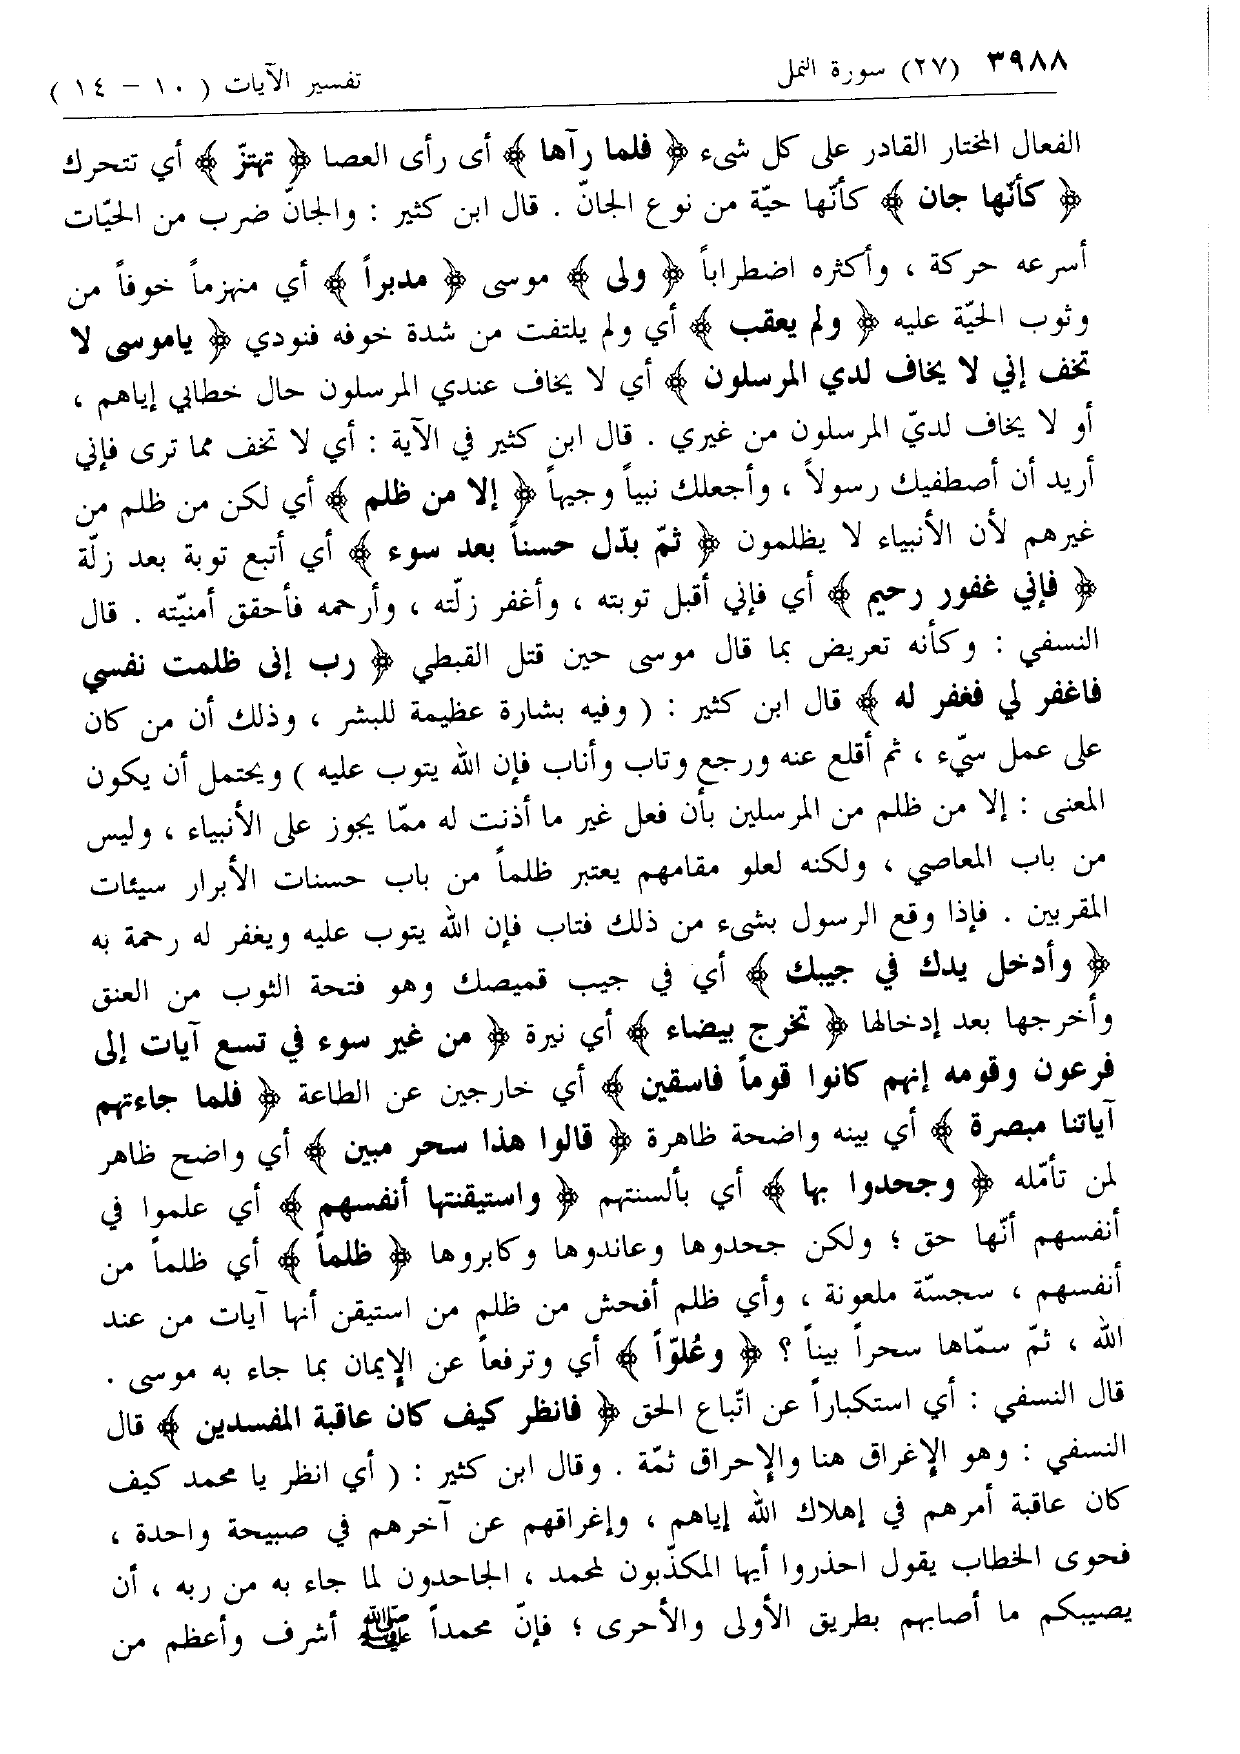 ٣٩٨٨ (٢٧) سورة النمل تفسير الآيات ( ١٠ – ١٤ )
الفعال المختار القادر على كل شىء ﴿ فلما رآها ﴾ أى رأى العصا ﴿ تهتزّ ﴾ أي تتحرك
﴿ كأنّها جان ﴾ كأنّها حيّة من نوع الجانّ . قال ابن كثير : والجانّ ضرب من الحيّات
أسرعه حركة ، وأكثره اضطراباً ﴿ ولى ﴾ موسى ﴿ مدبراً ﴾ أي منهزماً خوفاً من
وثوب الحيّة عليه ﴿ ولم يعقب ﴾ أي ولم يلتفت من شدة خوفه فنودي ﴿ ياموسى لا
تخف إني لا يخاف لدي المرسلون ﴾ أي لا يخاف عندي المرسلون حال خطابي إياهم ،
أو لا يخاف لديّ المرسلون من غيري . قال ابن كثير في الآية : أي لا تخف مما ترى فإني
أريد أن أصطفيك رسولاً ، وأجعلك نبياً وجيهاً ﴿ إلا من ظلم ﴾ أي لكن من ظلم من
غيرهم لأن الأنبياء لا يظلمون ﴿ ثمّ بدّل حسناً بعد سوء ﴾ أي أتبع توبة بعد زلّة
﴿ فإني غفور رحيم ﴾ أي فإني أقبل توبته ، وأغفر زلّته ، وأرحمه فأحقق أمنيّته . قال
النسفي : وكأنه تعريض بما قال موسى حين قتل القبطي ﴿ رب إنى ظلمت نفسي
فاغفر لي فغفر له ﴾ قال ابن كثير : ( وفيه بشارة عظيمة للبشر ، وذلك أن من كان
على عمل سيّء ، ثم أقلع عنه ورجع وتاب وأناب فإن الله يتوب عليه ) ويحتمل أن يكون
المعنى : إلا من ظلم من المرسلين بأن فعل غير ما أذنت له ممّا يجوز على الأنبياء ، وليس
من باب المعاصي ، ولكنه لعلو مقامهم يعتبر ظلماً من باب حسنات الأبرار سيئات
المقربين . فإذا وقع الرسول بشىء من ذلك فتاب فإن الله يتوب عليه ويغفر له رحمة به
﴿ وأدخل يدك في جيبك ﴾ أي في جيب قميصك وهو فتحة الثوب من العنق
وأخرجها بعد إدخالها ﴿ تخرج بيضاء ﴾ أي نيرة ﴿ من غير سوء في تسع آيات إلى
فرعون وقومه إنهم كانوا قوماً فاسقين ﴾ أي خارجين عن الطاعة ﴿ فلما جاءتهم
آياتنا مبصرة ﴾ أي بينه واضحة ظاهرة ﴿ قالوا هذا سحر مبين ﴾ أي واضح ظاهر
لمن تأمّله ﴿ وجحدوا بها ﴾ أي بألسنتهم ﴿ واستيقنتها أنفسهم ﴾ أي علموا في
أنفسهم أنّها حق ؛ ولكن جحدوها وعاندوها وكابروها ﴿ ظلماً ﴾ أي ظلماً من
أنفسهم ، سجسّة ملعونة ، وأي ظلم أفحش من ظلم من استيقن أنها آيات من عند
الله ، ثمّ سمّاها سحراً بيناً ؟ ﴿ وعُلوّاً ﴾ أي وترفعاً عن الإيمان بما جاء به موسى .
قال النسفي : أي استكباراً عن اتّباع الحق ﴿ فانظر كيف كان عاقبة المفسدين ﴾ قال
النسفي : وهو الإغراق هنا والإحراق ثمّة . وقال ابن كثير : ( أي انظر يا محمد كيف
كان عاقبة أمرهم في إهلاك الله إياهم ، وإغراقهم عن آخرهم في صبيحة واحدة ،
فحوى الخطاب يقول احذروا أيها المكذّبون لمحمد ، الجاحدون لما جاء به من ربه ، أن
يصيبكم ما أصابهم بطريق الأولى والأحرى ؛ فإنّ محمداً ﷺ أشرف وأعظم من